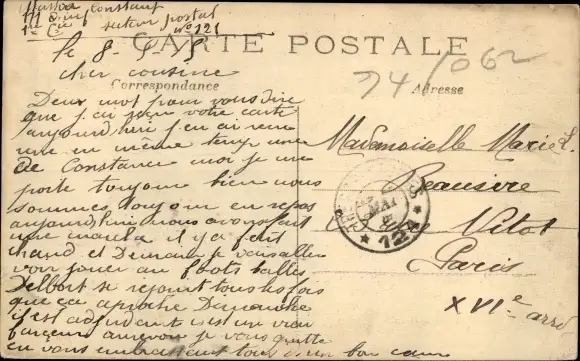 Constant
1re Cie secteur postal
No 121
le 8-5-15
CARTE POSTALE
74/062
cher cousine
Correspondance
Adresse
Deux mot pour vous dire
que j'ai reçu votre carte
aujourd'hui j'en ai reçu
une en même temps une
de Constance moi je me
porte toujour bien nous
sommes toujour en repos
aujourd'hui nous avons fait
une il y a fait
chaud et Demain je vais aller
voir jouer au foots balles
Delbort se rejouit tous les fois
que ca aproche Dimanche
il est adjudent c'est un vrai
farceur aurevoir je vous quitte
en vous embrassant tous d'un bon cœur
Mademoiselle Marie L.
Beausire
Rue Vitot
Paris
XVIe arrd
MAI
124